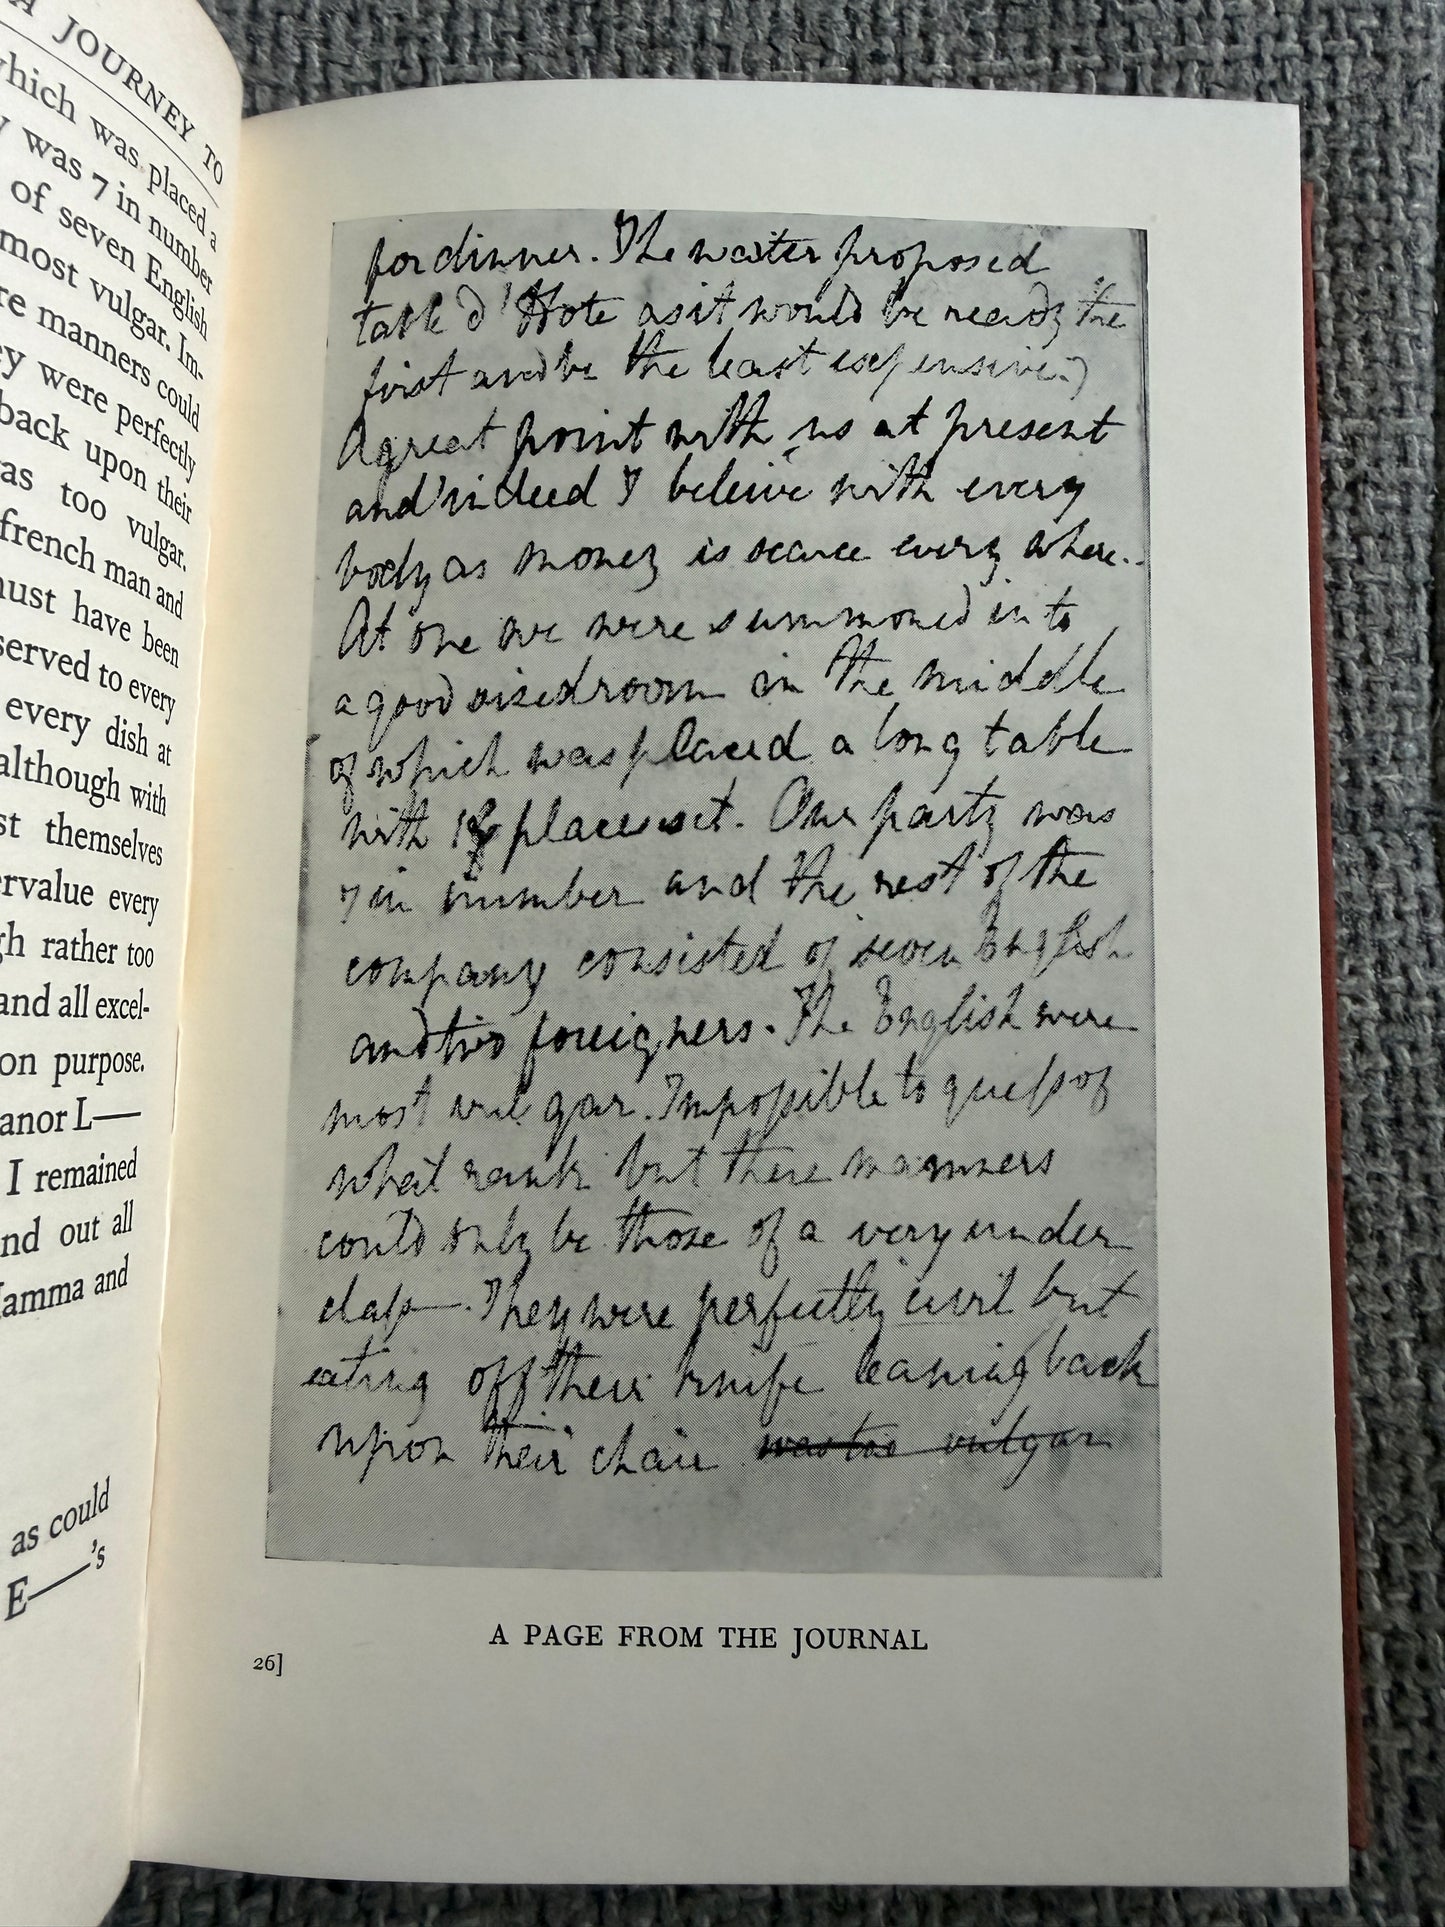 A JOURNEY TO
which was placed a
was 7 in number
of seven English
most vulgar. Im-
manners could
were perfectly
back upon their
too vulgar.
french man and
must have been
served to every
every dish at
although with
themselves
every
rather too
and all excel-
on purpose.
L—
I remained
out all
Mamma and
as could
E——'s
for dinner. The waiter proposed
table d'Hote as it would be ready the
first and be the least expensive.)
A great point with us at present
and indeed I beleive with every
body as money is scarce every where..
At one we were summoned in to
a good sized room in the middle
of which was placed a long table
with 18 places set. Our party was
7 in number and the rest of the
company consisted of seven English
and two foreigners. The English were
most vulgar. Impossible to guess of
what rank but there manners
could only be those of a very under
class—. They were perfectly civil but
eating off their knife leaning back
upon their chair was too vulgar
A PAGE FROM THE JOURNAL
26]